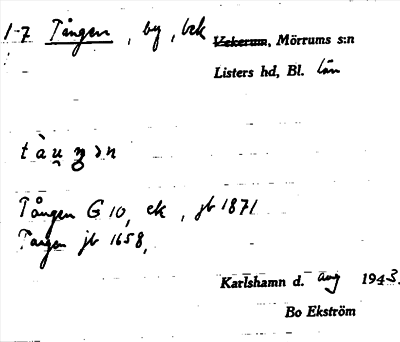 1-7 Tången, by, bek
Vekerum, Mörrums s:n
Listers hd, Bl. län
t à u̯ ŋ ɔ n
Tången G 10, ek, jb 1871
Tangen jb 1658,
Karlshamn d. aug 1943.
Bo Ekström